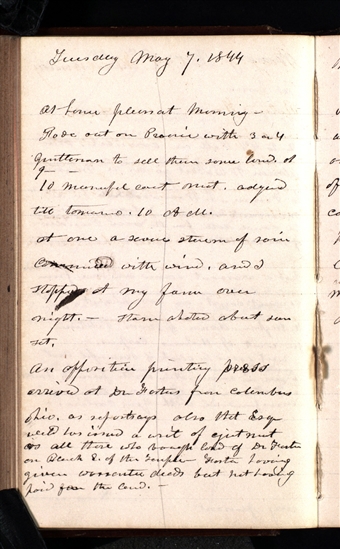 Tuesday May 7, 1844
At home pleasat Morning –
Rode out on Prairie with 3 or 4
gentleman to sell them some land. at
9 –
10 court met. adjd
till tomorro. 10 A M.
at one a severe storm of rain
with wind. and I
stopped at my farm over
night. – storm abated about sun
set.
An opposition printing press
arrived at Dr Fosters from Columbus
Ohio. as report says also that Esqr
issued a writ of ejectment
as all those who bought land of Dr Foster
on Block 2. of the Temple Foster having
given warrantee deeds but not having
paid for the land.